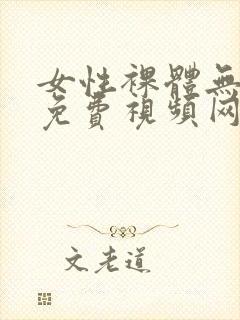 女性裸體無
免費視頻网
文老道